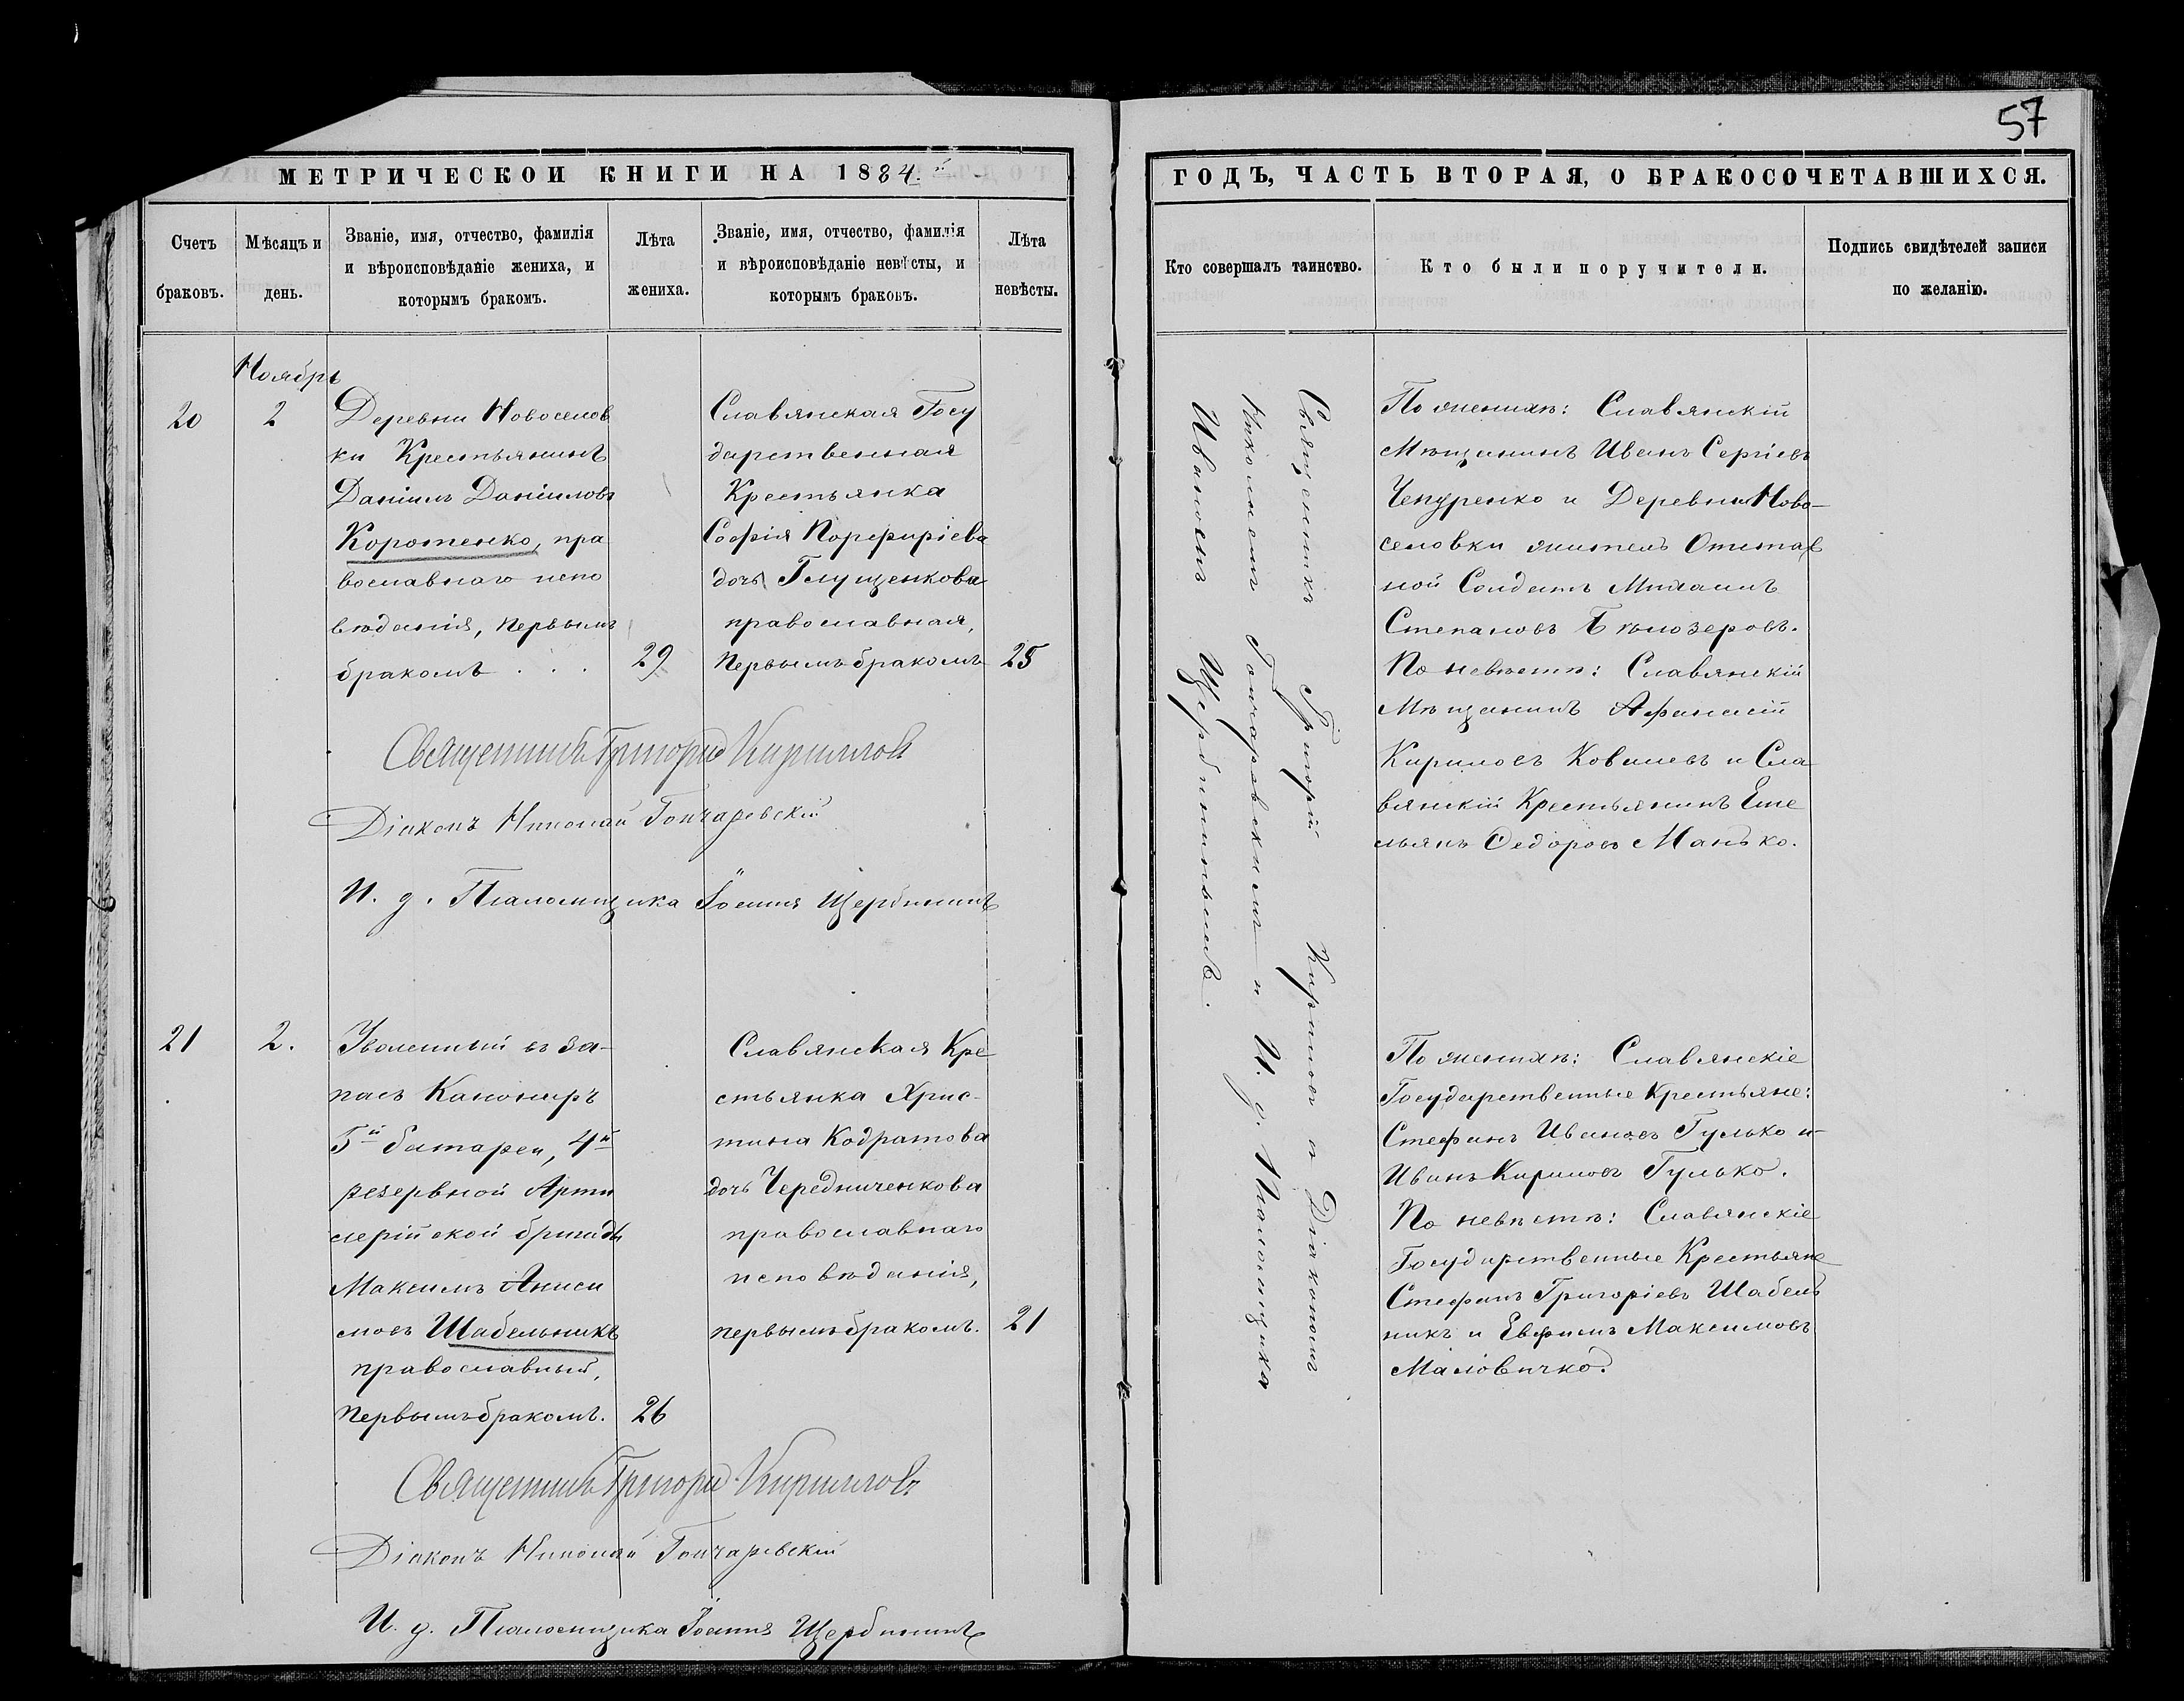 57
МЕТРИЧЕСКОЙ КНИГИ НА 1884.й
ГОДЪ, ЧАСТЬ ВТОРАЯ, О БРАКОСОЧЕТАВШИХСЯ.
Счетъ
браковъ.
Мѣсяцъ и
день.
Званіе, имя, отчество, фамилія
и вѣроисповѣданіе жениха, и
которымъ бракомъ.
Лѣта
жениха.
Званіе, имя, отчество, фамилія
и вѣроисповѣданіе невѣсты, и
которымъ браковъ.
Лѣта
невѣсты.
Кто совершалъ таинство.
Кто были поручители.
Подпись свидѣтелей записи
по желанію.
Ноябрь
20
2
Деревни Новоселов
ки Крестьянинъ
Даніилъ Даніиловъ
Коротенко, пра
вославнаго испо
вѣданія, первымъ
бракомъ . . .
29
Славянская Госу
дарственная
Крестьянка
Софія Порфиріева
дочь Глущенкова
православная,
первымъ бракомъ
25
Священникъ Григорій Кириллов
Діаконъ Николай Гончаревскій
И. д. Псаломщика Іоаннъ Щербининъ
Священникъ Григорій Кириловъ и Діакономъ
Николаемъ Гончаревскимъ и И. д. Псаломщика
Иваномъ Щербининымъ.
По женихѣ: Славянскій
Мѣщанинъ Иванъ Сергіевъ
Чепуренко и Деревни Ново-
селовки житель Отстав
ной Солдатъ Михаилъ
Степановъ Бѣлозеровъ.
По невѣстѣ: Славянскій
Мѣщанинъ Афанасій
Кириловъ Ковалевъ и Сла
вянскій Крестьянинъ Еме
льянъ Федоровъ Манько.
21
2.
Уволенный въ за-
пасъ Канониръ
5й батареи, 4й
резервной Арти
лерійской бригады
Максимъ Аниси
мовъ Шабельникъ
православный,
первымъ бракомъ.
26
Славянская Кре
стьянка Хрис-
тина Кодратова
дочь Чередниченкова
православнаго
исповѣданія,
первымъ бракомъ.
21
Священникъ Григорій Кирилловъ
Діаконъ Николай Гончаревскій
И. д. Псаломщика Іоаннъ Щербининъ
По женихѣ: Славянскіе
Государственные Крестьяне:
Стефанъ Ивановъ Гулько и
Иванъ Кириловъ Гулько.
По невѣстѣ: Славянскіе
Государственные Крестьяне
Стефанъ Григоріевъ Шабель
никъ и Евфимъ Максимовъ
Маловичко.